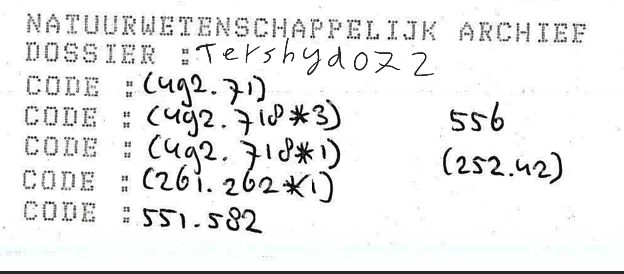 NATUURWETENSCHAPPELIJK ARCHIEF
DOSSIER : Tershyd072
CODE : (492.71)
CODE : (492.718*3) 556
CODE : (492.718*1) (252.42)
CODE : (261.262*1)
CODE : 551.582